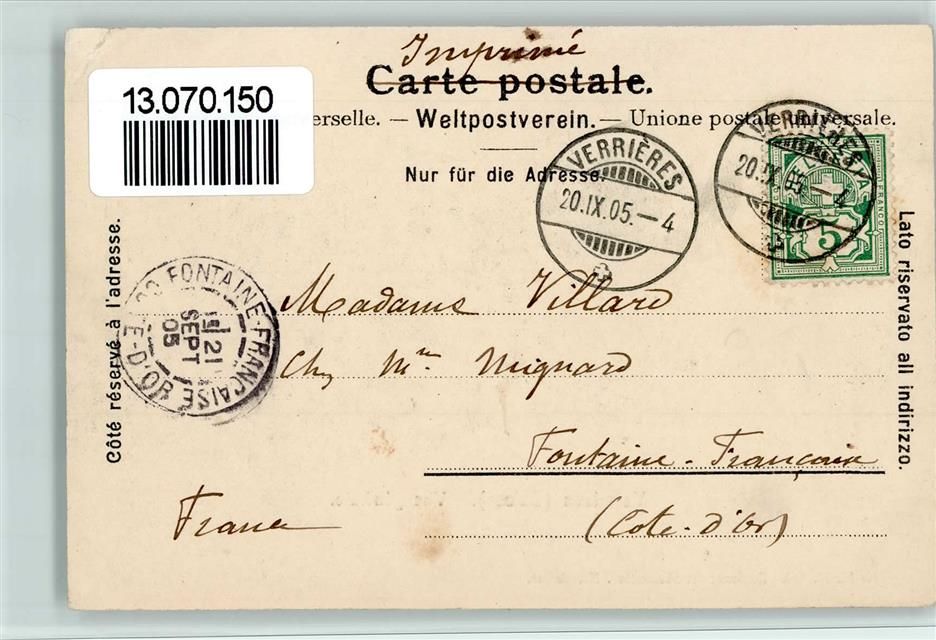 Imprimé
Carte postale.
13.070.150
erselle. — Weltpostverein. — Unione postale universale.
Nur für die Adresse.
VERRIÈRES
20.IX.05.—4
VERRIÈRES
20.IX.05.—4
HELVETIA
FRANCO
5
Côté réservé à l'adresse.
Lato riservato all indirizzo.
FONTAINE-FRANÇAISE
21
SEPT
05
E-D'OR
Madame Villard
Chez Mme Mignard
Fontaine-Française
(Côte-d'Or)
France